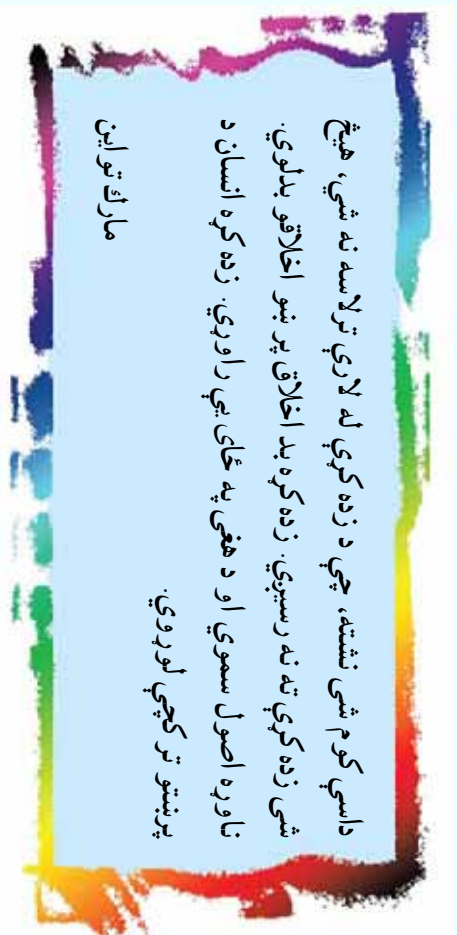 داسې کوم شی نشته، چې د زده کړې له لارې ترلاسه نه شي، هیڅ
شی زده کړې ته نه رسیږي. زده کړه بد اخلاق پر ښو اخلاقو بدلوي.
ناوړه اصول سموي او د هغې په ځای یې راوړي. زده کړه انسان د
پرښتو تر کچې لوړوي.
مارك تواین